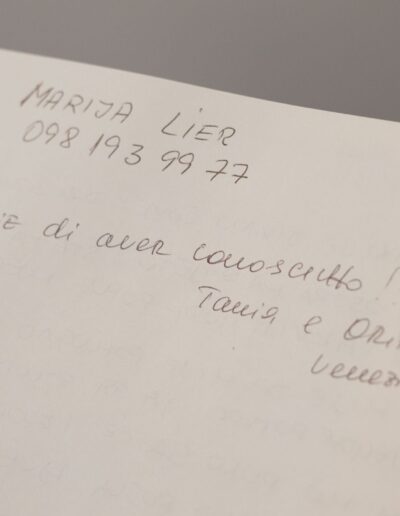 MARIJA LIER
098 193 99 77
di aver conosciuto!
Tania e